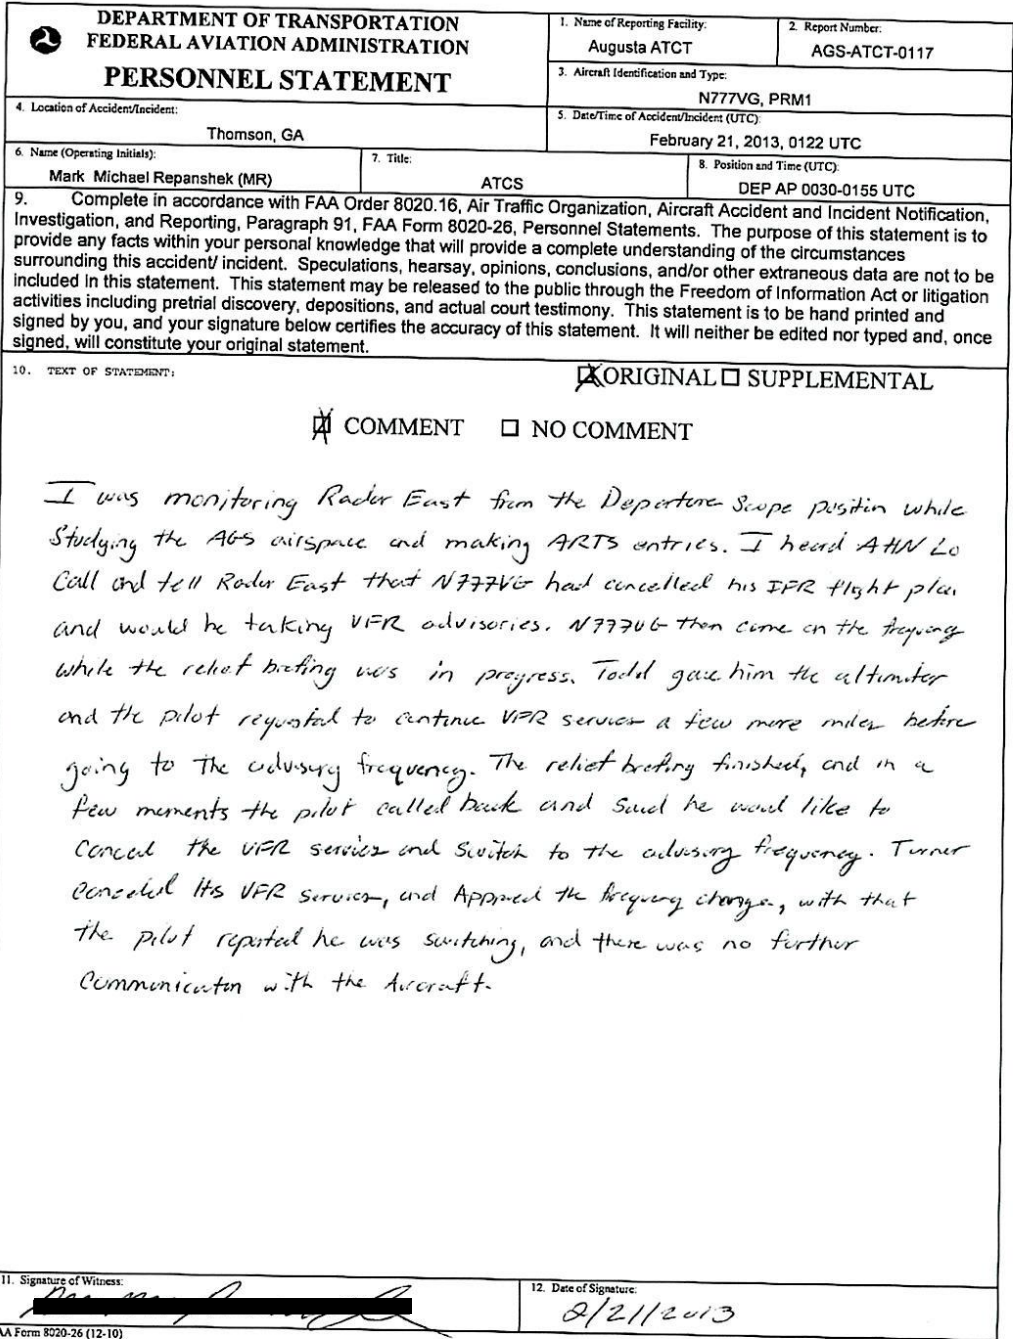 DEPARTMENT OF TRANSPORTATION
FEDERAL AVIATION ADMINISTRATION
PERSONNEL STATEMENT
1. Name of Reporting Facility:
Augusta ATCT
2. Report Number:
AGS-ATCT-0117
3. Aircraft Identification and Type:
N777VG, PRM1
4. Location of Accident/Incident:
Thomson, GA
5. Date/Time of Accident/Incident (UTC):
February 21, 2013, 0122 UTC
6. Name (Operating Initials):
Mark Michael Repanshek (MR)
7. Title:
ATCS
8. Position and Time (UTC):
DEP AP 0030-0155 UTC
9. Complete in accordance with FAA Order 8020.16, Air Traffic Organization, Aircraft Accident and Incident Notification,
Investigation, and Reporting, Paragraph 91, FAA Form 8020-26, Personnel Statements. The purpose of this statement is to
provide any facts within your personal knowledge that will provide a complete understanding of the circumstances
surrounding this accident/ incident. Speculations, hearsay, opinions, conclusions, and/or other extraneous data are not to be
included in this statement. This statement may be released to the public through the Freedom of Information Act or litigation
activities including pretrial discovery, depositions, and actual court testimony. This statement is to be hand printed and
signed by you, and your signature below certifies the accuracy of this statement. It will neither be edited nor typed and, once
signed, will constitute your original statement.
10. TEXT OF STATEMENT:
ORIGINAL SUPPLEMENTAL
COMMENT NO COMMENT
I was monitoring Radar East from the Departure Scope position while
Studying the AGS airspace and making ARTS entries. I heard AHN Lo
Call and tell Radar East that N777VG had cancelled his IFR flight plan
and would be taking VFR advisories. N777VG then came on the frequency
while the relief briefing was in progress. Todd gave him the altimeter
and the pilot requested to continue VFR services a few more miles before
going to the advisory frequency. The relief briefing finished, and in a
few moments the pilot called back and said he would like to
Cancel the VFR services and switch to the advisory frequency. Turner
Canceled his VFR services, and Approved the frequency change, with that
the pilot reported he was switching, and there was no further
Communication with the Aircraft.
11. Signature of Witness:
12. Date of Signature:
2/21/2013
AA Form 8020-26 (12-10)